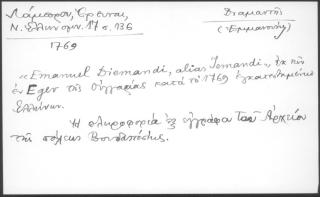 Λάμπρου, Έρευναι,
Ν. Ελληνομν. 17 σ. 136
Διαμαντής
(Εμμανουήλ)
1769
«Emanuel Diemandi, alias Jemandi», εκ των
εν Eger της Ουγγαρίας κατά το 1769 εγκατεστημένων
Ελλήνων.
Η πληροφορία εξ εγγράφου του Αρχείου
της πόλεως Βουδαπέστης.